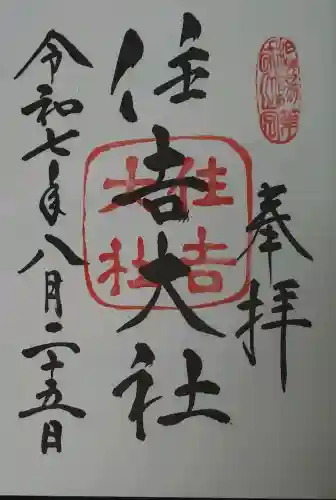 奉拝
住吉大社
住吉
大社
令和七年八月二十五日